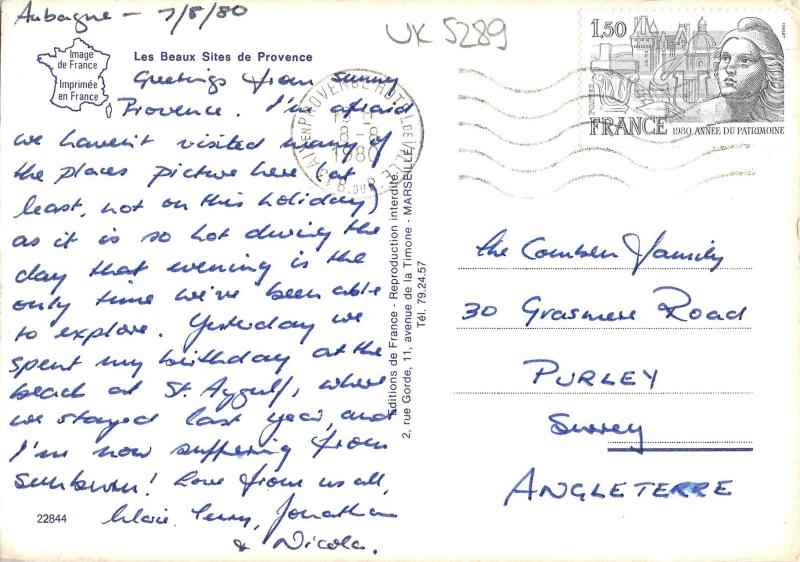 Aubagne - 7/8/80
UK 5289
1,50
POSTES
FRANCE
1980 ANNÉE DU PATRIMOINE
Image
de France
Imprimée
en France
Les Beaux Sites de Provence
Greetings from sunny
Provence. I'm afraid
we haven't visited many of
the places picture here (at
least, not on this holiday)
as it is so hot during the
day that evening is the
only time we've been able
to explore. Yesterday we
spent my birthday at the
beach at St. Aygulf, where
we stayed last year, and
I'm now suffering from
sunburn! Love from us all,
Claire, Terry, Jonathan
& Nicola.
22844
13 AIX EN PROVENCE HOTEL DE VILLE
8 - 8
1980
B. DU R.
Editions de France - Reproduction interdite
2, rue Gorde, 11, avenue de la Timone - MARSEILLE
Tél. 79.24.57
The Comben Family
30 Grasmere Road
PURLEY
Surrey
ANGLETERRE